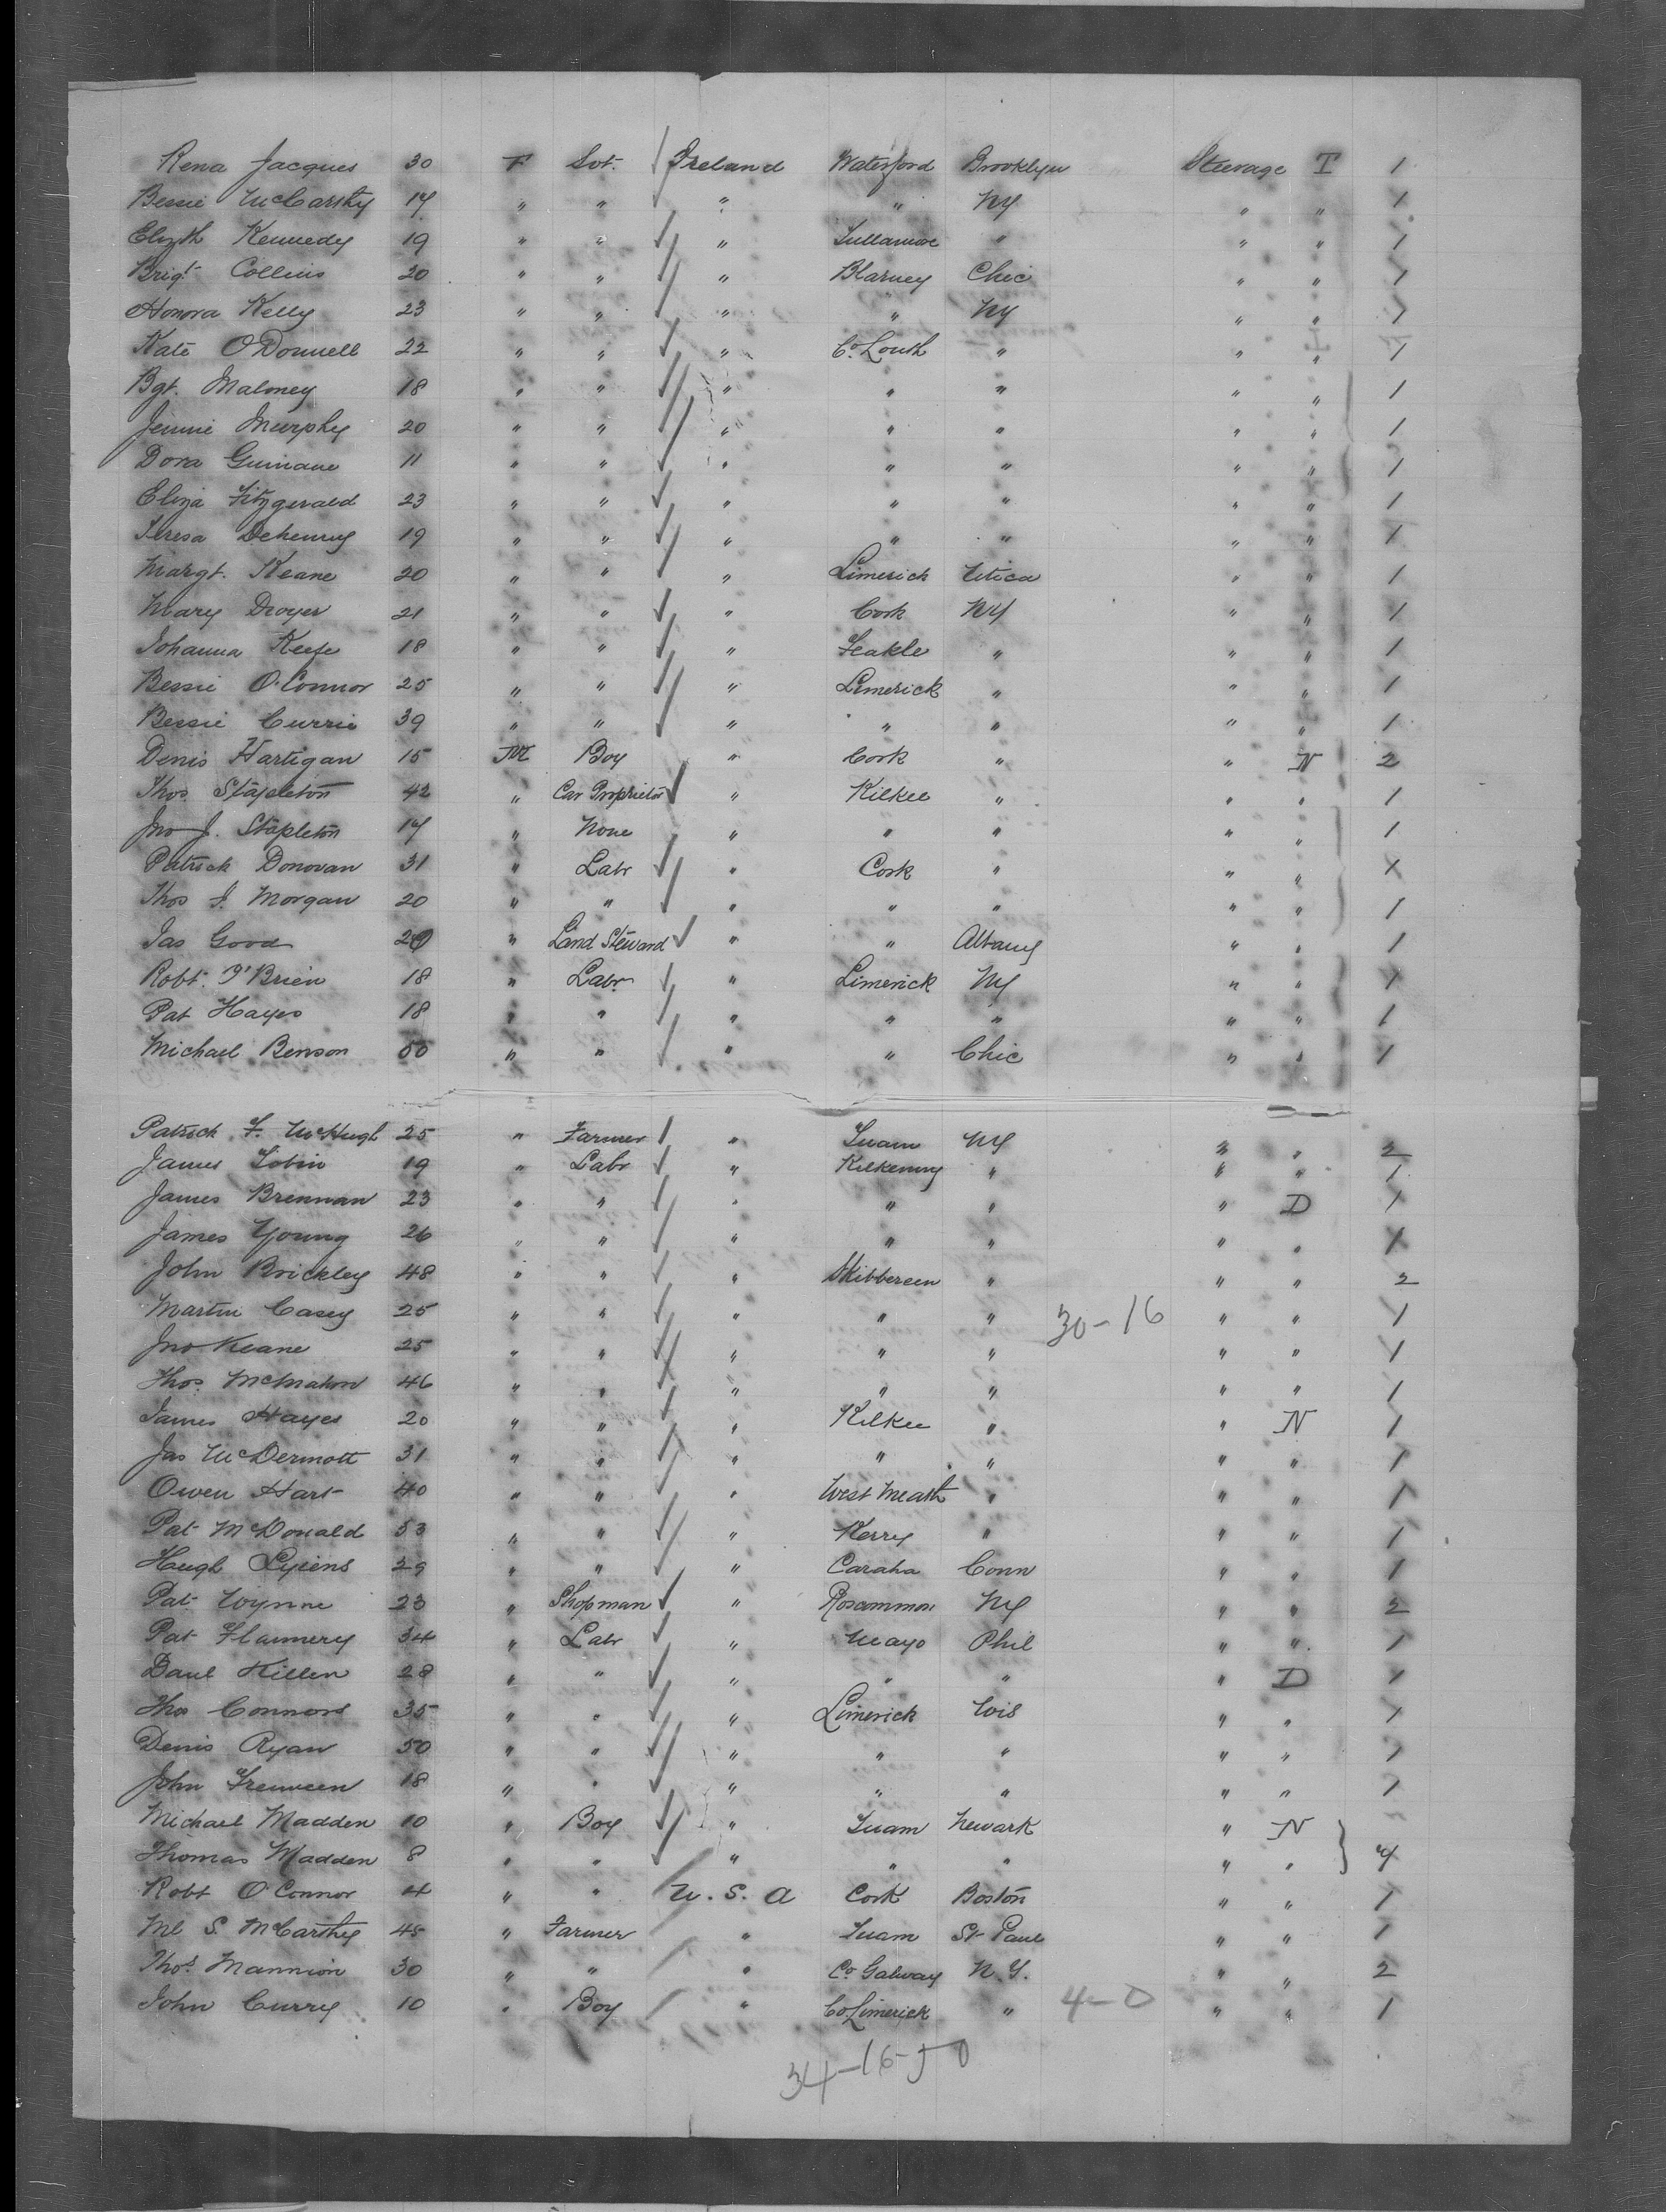 Rena Jacques 30 F Svt. Ireland Waterford Brooklyn Steerage T 1
Bessie McCarthy 17 " " " " NY " " 1
Elizth Kennedy 19 " " " Tullamore " " " 1
Brigt Collins 20 " " " Blarney Chic " " 1
Honora Kelly 23 " " " " NY " " 1
Kate O'Donnell 22 " " " Co. Louth " " " 1
Bgt. Maloney 18 " " " " " " " 1
Jennie Murphy 20 " " " " " " " 1
Dora Guinane 11 " " " " " " " 1
Eliza Fitzgerald 23 " " " " " " " 1
Teresa Dehenny 19 " " " " " " " 1
Margt. Keane 20 " " " Limerick Utica " " 1
Mary Dwyer 21 " " " Cork NY " " 1
Johanna Keefe 18 " " " Feakle " " " 1
Bessie O'Connor 25 " " " Limerick " " " 1
Bessie Currie 39 " " " " " " " 1
Denis Hartigan 15 M Boy " Cork " " N 2
Thos. Stapleton 42 " Car Proprietor " Kilkee " " " 1
Jno J. Stapleton 17 " None " " " " " 1
Patrick Donovan 31 " Labr " Cork " " " 1
Thos J. Morgan 20 " " " " " " " 1
Jas Good 20 " Land Steward " " Albany " " 1
Robt. O'Brien 18 " Labr " Limerick NY " " 1
Pat Hayes 18 " " " " " " " 1
Michael Benson 50 " " " " Chic " " 1
Patrick F. McHugh 25 " Farmer " Tuam NY " " 2
James Tobin 19 " Labr " Kilkenny " " " 1
James Brennan 23 " " " " " " D 1
James Young 26 " " " " " " " 1
John Brickley 48 " " " Skibbereen " " " 2
Martin Casey 25 " " " " " 30-16 " " 1
Jno Keane 25 " " " " " " " 1
Thos. McMahon 46 " " " " " " " 1
James Hayes 20 " " " Kilkee " " N 1
Jas McDermott 31 " " " " " " " 1
Owen Hart 40 " " " West Meath " " " 1
Pat McDonald 53 " " " Kerry " " " 1
Hugh Lyiens 29 " " " Caraha Conn " " 1
Pat Wynne 23 " Shopman " Roscommon NY " " 2
Pat Flannery 34 " Labr " Mayo Phil " " 1
Danl Killen 28 " " " " " " D 1
Thos Connors 35 " " " Limerick Wis " " 1
Denis Ryan 50 " " " " " " " 1
John 18 " " " " " " " 1
Michael Madden 10 " Boy " Tuam Newark " N
Thomas Madden 8 " " " " " " " } 4
Robt O'Connor 4 " " U.S.A Cork Boston " " 1
Ml S. McCarthy 45 " Farmer " Tuam St Paul " " 1
Thos. Mannion 30 " " " Co Galway N.Y. " " 2
John Curry 10 " Boy " Co Limerick " 4-0 " " 1
34-16-50